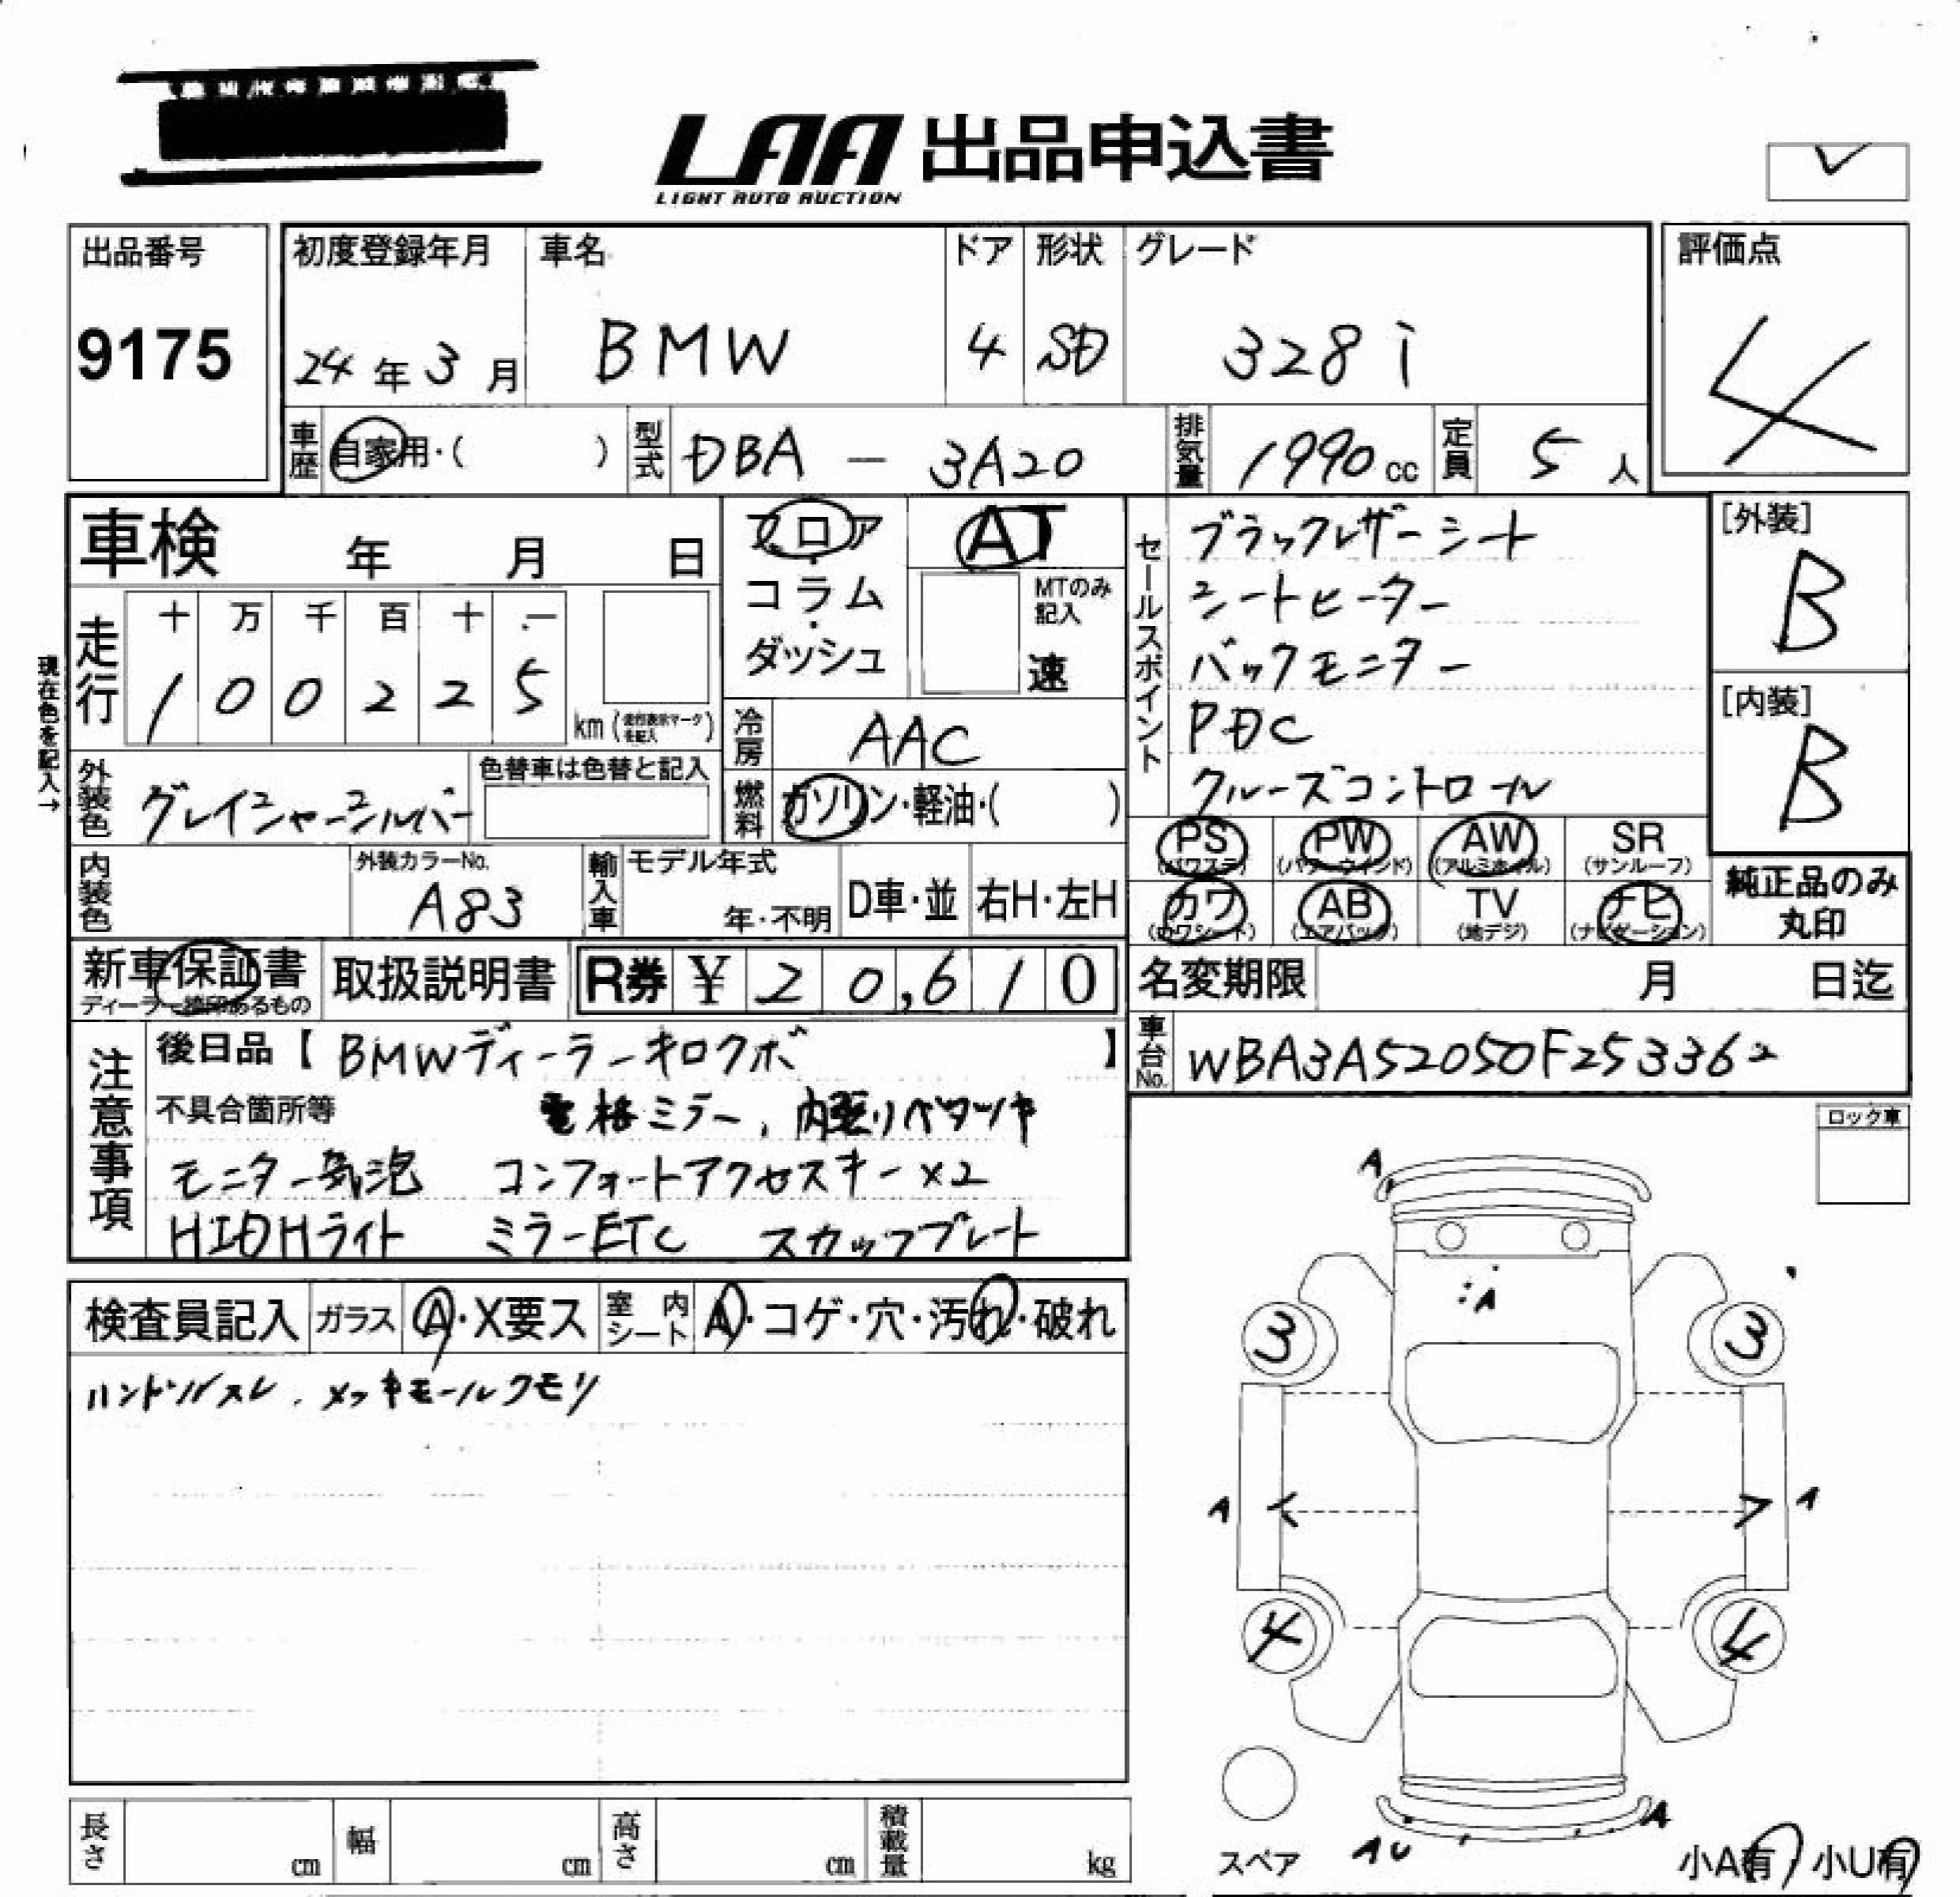 LAA 出品申込書
LIGHT AUTO AUCTION
出品番号
9175
初度登録年月 車名 ドア 形状 グレード
24年3月 BMW 4 SD 328i
評価点
4
車歴 自家用・( ) 型式 DBA-3A20 排気量 1990cc 定員 5人
車検 年 月 日
フロア・コラム・ダッシュ
AT
MTのみ記入
速
現在色を記入→
走行 十 万 千 百 十 一
1 0 0 2 2 5 km
冷房 AAC
燃料 ガソリン・軽油・( )
外装色 グレイシャーシルバー
色替車は色替と記入
内装色
外装カラーNo.
A83
輸入車 モデル年式
年・不明
D車・並 右H・左H
セールスポイント
ブラックレザーシート
シートヒーター
バックモニター
PDC
クルーズコントロール
[外装]
B
[内装]
B
PS PW AW SR
(パワステ) (パワーウインド) (アルミホイル) (サンルーフ)
カワ AB TV ナビ
(カワシート) (エアバッグ) (地デジ) (ナビゲーション)
純正品のみ
丸印
新車保証書
ディーラー捺印あるもの
取扱説明書
R券 ¥ 20,610
名変期限 月 日迄
車台No. WBA3A52050F253362
注意事項
後日品【BMWディーラーキロクボ】
不具合箇所等 電格ミラー、内張りベタツキ
モニター気泡 コンフォートアクセスキー×2
HIDHライト ミラーETC スカッフプレート
ロック車
検査員記入 ガラス A・X要ス 室内シート A・コゲ・穴・汚れ・破れ
ハンドルスレ、メッキモールクモリ
A
A
3 3
A < > A
4 4
A
AU
スペア
小A有 小U有
長さ cm 幅 cm 高さ cm 積載量 kg